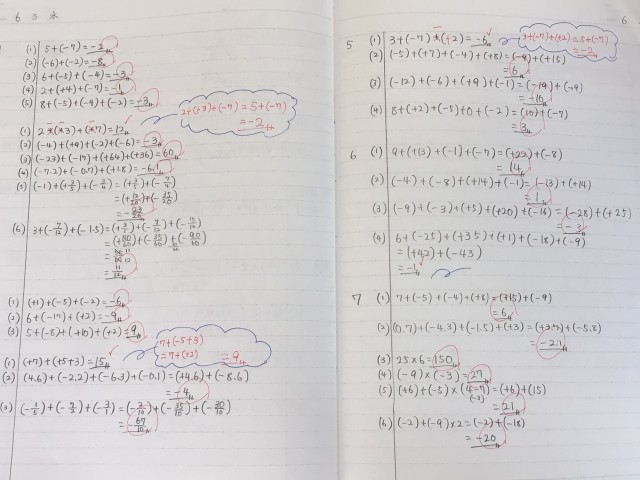 6 3 水
(1) 5+(-7)=-2
(2) (-6)+(-2)=-8
(3) 6+(-5)+(-4)=-3
(4) 2+(+4)+(-7)=-1
(5) 8+(-5)+(-4)+(-2)=-3
2+(+3)+(-7)=5+(-7)
=-2
(2) (-4)+(+9)+(-2)+(-6)=-3
(3) (-23)+(-17)+(+64)+(+36)=60
(4) (-7.2)+(-0.7)+(+1.8)=-6.1
(1) (+1)+(-5)+(-2)=-6
(2) 6+(-17)+(+2)=-9
(3) 5+(-8)+(+10)+(+2)=9
7+(-5+3)
=7+(+2)
=9
(1) (+7)+(+5+3)=15
(2) (4.6)+(-2.2)+(-6.3)+(-0.1)=(+4.6)+(-8.6)
=-4
6
5
3+(-7)+(+2)=5+(-7)
=-2
(2) (-5)+(+7)+(-4)+(+8)=(-9)+(+15)
=6
(3) (-12)+(-6)+(+9)+(-1)=(-19)+(+9)
=-10
(4) 8+(+2)+(-5)+0+(-2)=(10)+(-7)
=3
6 (1) 9+(+13)+(-1)+(-7)=(+22)+(-8)
=14
(2) (-4)+(-8)+(+14)+(-1)=(-13)+(+14)
=1
(3) (-9)+(-3)+(+5)+(+20)+(-16)=(-28)+(+25)
=-3
(4) 6+(-25)+(+35)+(+1)+(-18)+(-9)
=(+42)+(-43)
=-1
7 (1) 7+(-5)+(-4)+(+8)=(+15)+(-9)
=6
(2) (0.7)+(-4.3)+(-1.5)+(+3)=(+3.7)+(-5.8)
=-2.1
(3) 25×6=150
(4) (-9)×(-3)=27
(5) (+6)+(-5)×(4-7)=(+6)+(15)
(-3)
=21
(6) (-2)+(-9)×2=(-2)+(-18)
=-20